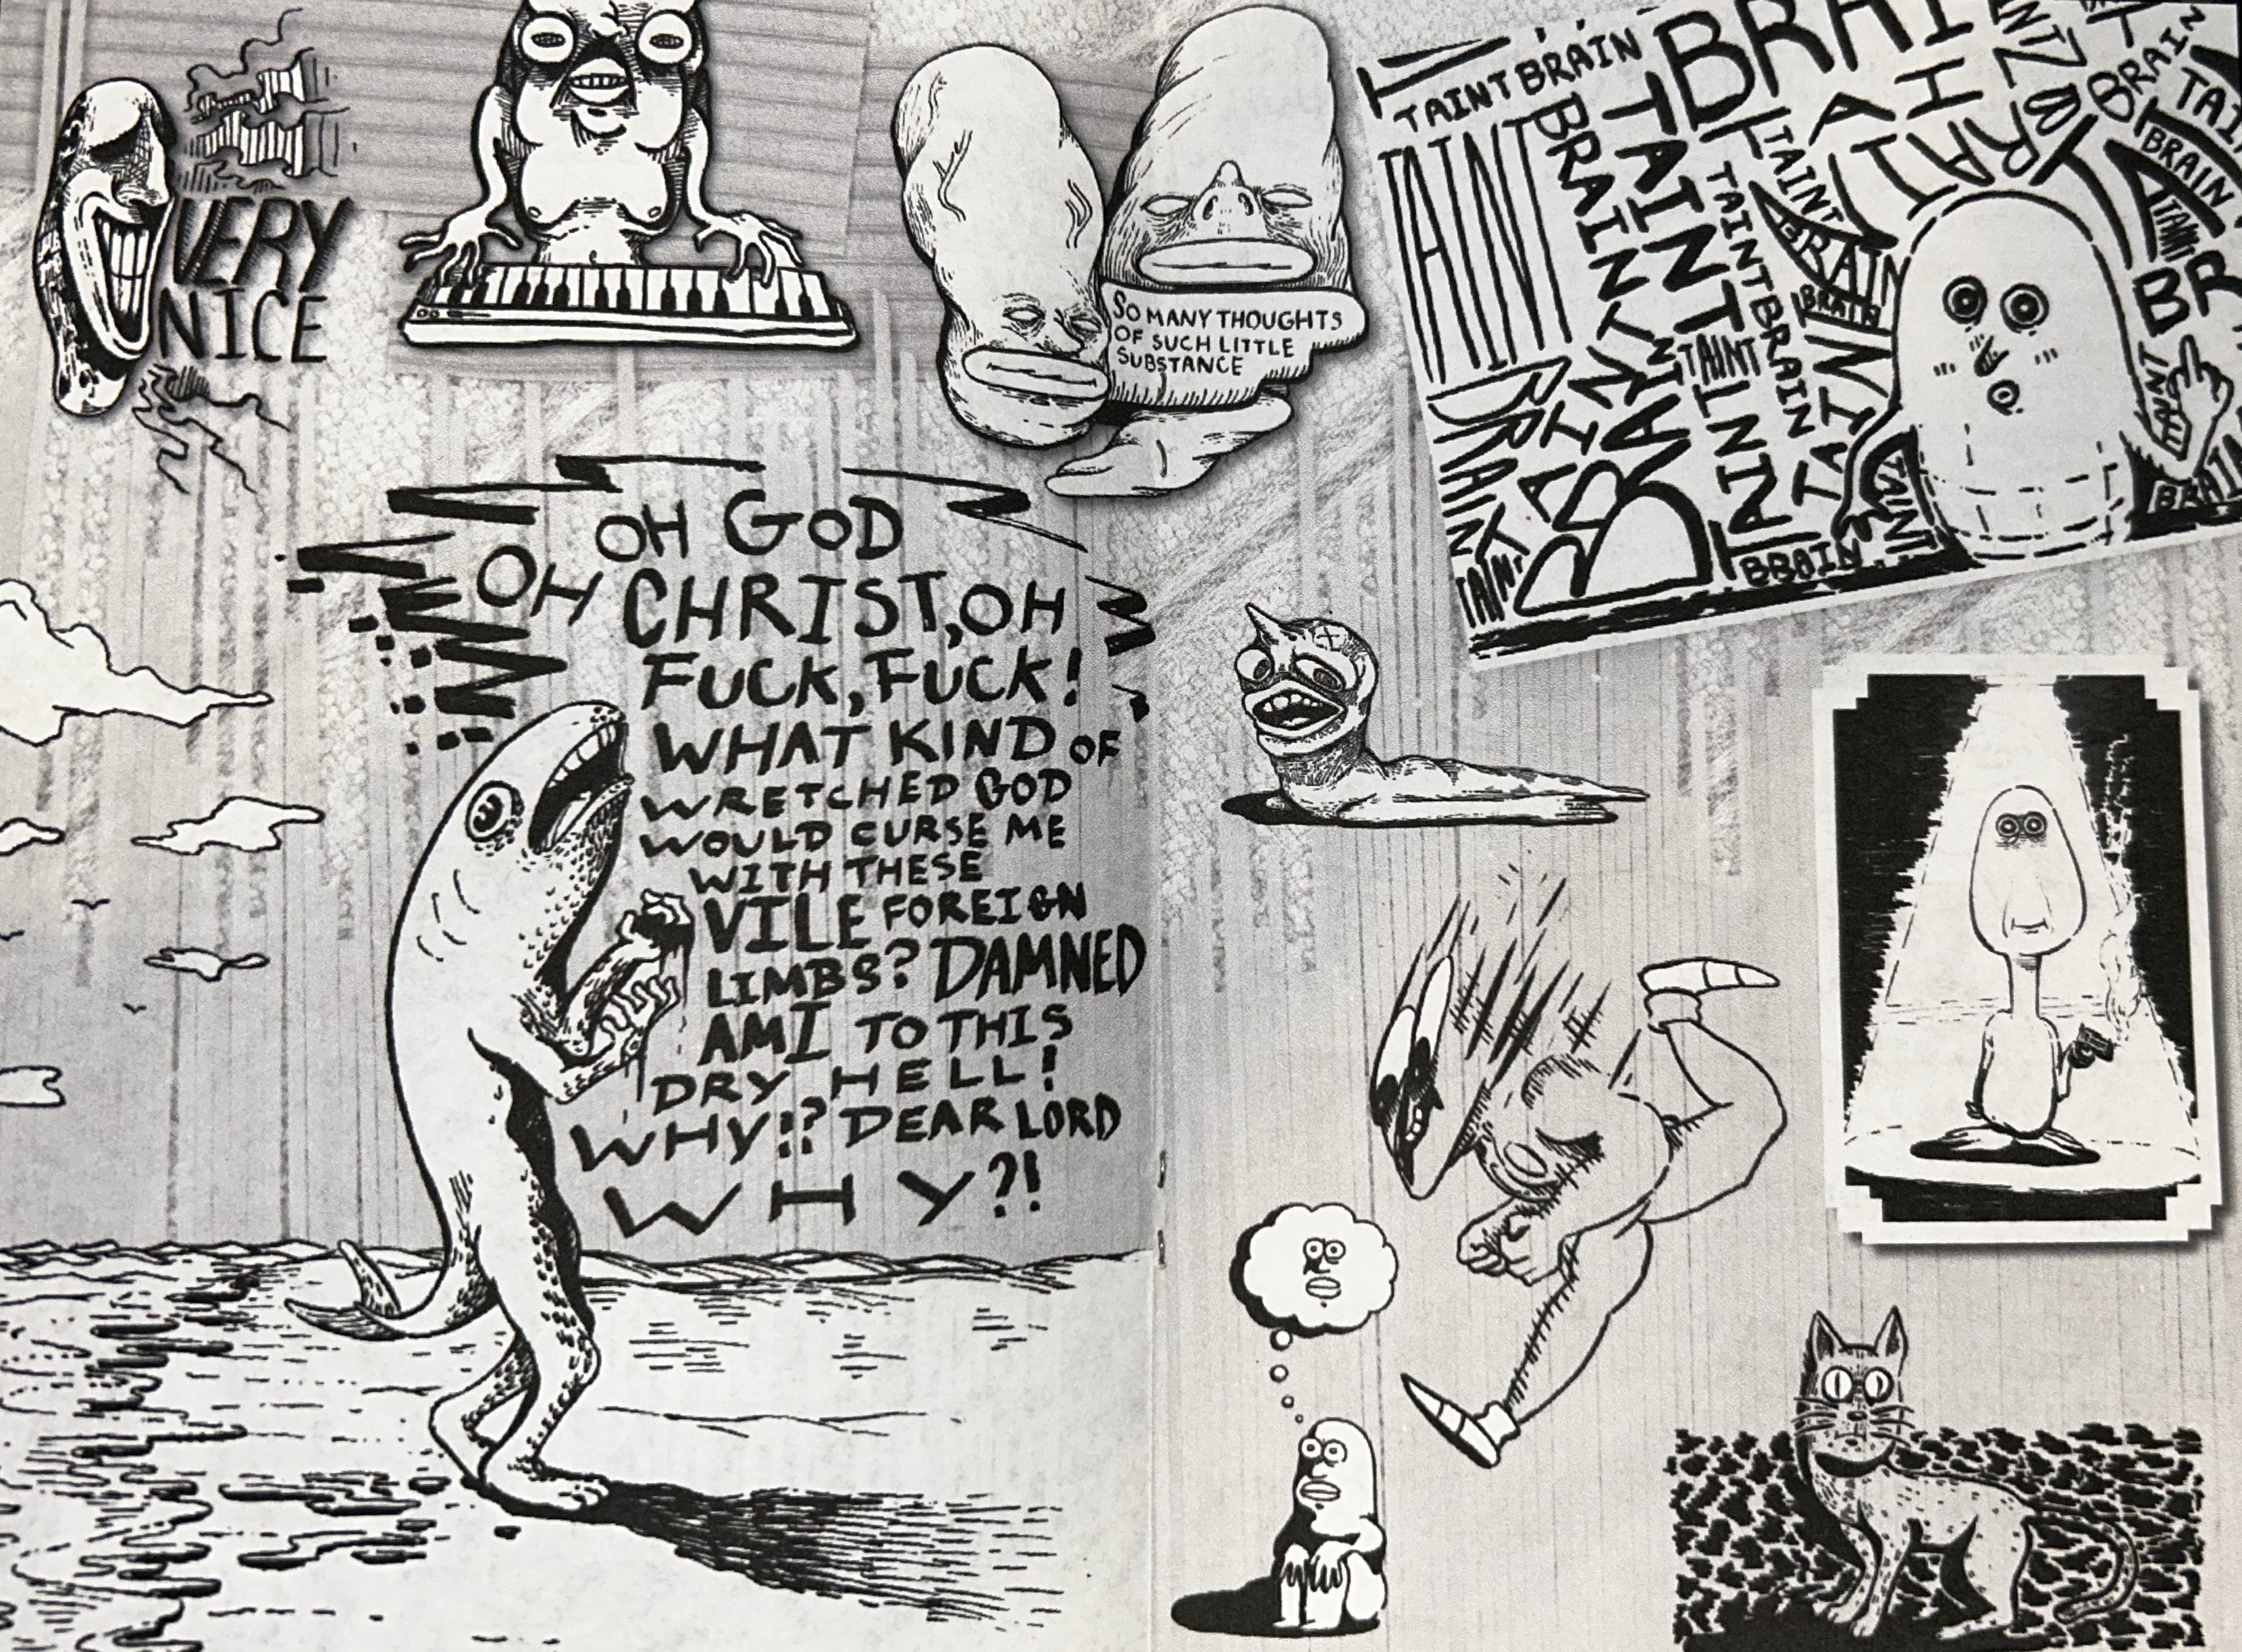 VERY
NICE
SO MANY THOUGHTS
OF SUCH LITTLE
SUBSTANCE
TAINT BRAIN
TAINT
BRAIN
TAINT
BRAIN
TAINT
BRAIN
TAINT
BRAIN
TAINT
BRAIN
TAINT
BRAIN
TAINT
BRAIN
TAINT
BRAIN
OH GOD
OH CHRIST, OH
FUCK, FUCK!
WHAT KIND OF
WRETCHED GOD
WOULD CURSE ME
WITH THESE
VILE FOREIGN
LIMBS? DAMNED
AM I TO THIS
DRY HELL!
WHY!? DEAR LORD
WHY?!